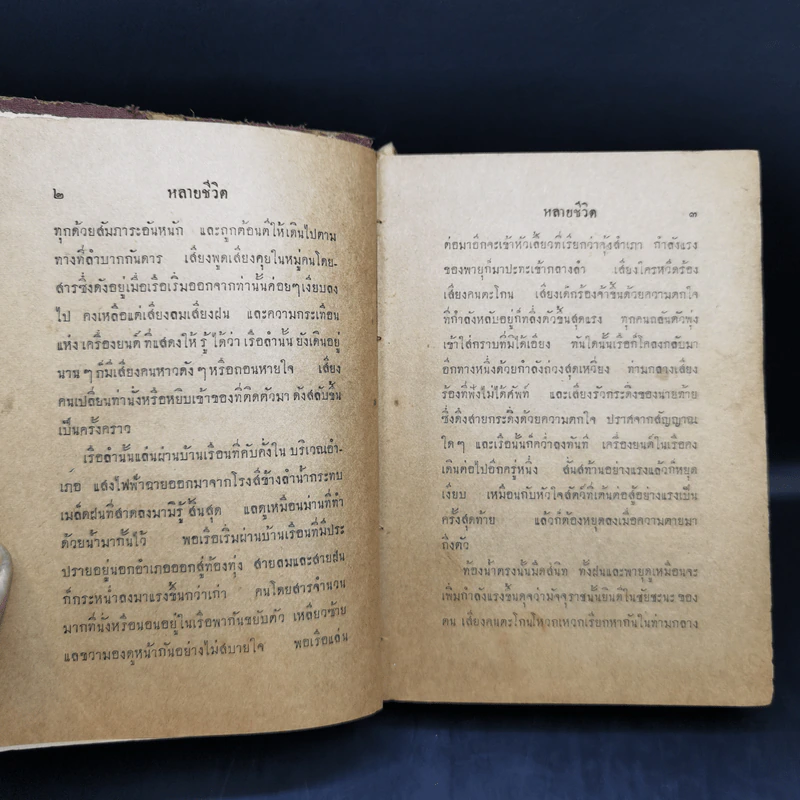 ๒
หลายชีวิต
ทุกด้วยสัมภาระอันหนัก และถูกต้อนตีให้เดินไปตาม
ทางที่ลำบากกันดาร เสียงพูดเสียงคุยในหมู่คนโดย-
สารซึ่งดังอยู่เมื่อเรือเริ่มออกจากท่านั้นค่อยๆเงียบลง
ไป คงเหลือแต่เสียงลมเสียงฝน และความกระเทือน
แห่งเครื่องยนต์ที่แสดงให้รู้ได้ว่า เรือลำนั้นยังเดินอยู่
นานๆก็มีเสียงคนหาวดังๆหรือถอนหายใจ เสียง
คนเปลี่ยนท่านั่งหรือหยิบเข้าของที่ติดตัวมา ดังสลับขึ้น
เป็นครั้งคราว
เรือลำนั้นแล่นผ่านบ้านเรือนที่คับคั่งใน บริเวณอำ-
เภอ แสงไฟฟ้าฉายออกมาจากโรงสีข้างลำน้ำกระทบ
เมล็ดฝนที่สาดลงมามิรู้สิ้นสุด แลดูเหมือนม่านที่ทำ
ด้วยน้ำมากั้นไว้ พอเรือเริ่มผ่านบ้านเรือนที่มีประ
ปรายอยู่นอกอำเภอออกสู่ท้องทุ่ง สายลมและสายฝน
ก็กระหน่ำลงมาแรงขึ้นกว่าเก่า คนโดยสารจำนวน
มากที่นั่งหรือนอนอยู่ในเรือพากันขยับตัว เหลียวซ้าย
แลขวามองดูหน้ากันอย่างไม่สบายใจ พอเรือแล่น
หลายชีวิต
๓
ต่อมาอีกจะเข้าหัวเลี้ยวที่เรียกว่าคุ้งสำเภา กำลังแรง
ของพายุก็มาปะทะเข้ากลางลำ เสียงใครหวีดร้อง
เสียงคนตะโกน เสียงเด็กร้องจ้าขึ้นด้วยความตกใจ
ที่กำลังหลับอยู่ก็ทลึ่งตัวขึ้นสุดแรง ทุกคนถลันตัวพุ่ง
เข้าใส่กราบที่มิได้เอียง ทันใดนั้นเรือก็โคลงกลับมา
อีกทางหนึ่งด้วยกำลังถ่วงสุดเหวี่ยง ท่ามกลางเสียง
ร้องที่ฟังไม่ได้ศัพท์ และเสียงรัวกระดิ่งของนายท้าย
ซึ่งดึงสายกระดิ่งด้วยความตกใจ ปราศจากสัญญาณ
ใดๆ และเรือนั้นก็คว่ำลงทันที เครื่องยนต์ในเรือคง
เดินต่อไปอีกครู่หนึ่ง สั่นสท้านอย่างแรงแล้วก็หยุด
เงียบ เหมือนกับหัวใจสัตว์ที่เต้นต่อสู้อย่างแรงเป็น
ครั้งสุดท้าย แล้วก็ต้องหยุดลงเมื่อความตายมา
ถึงตัว
ท้องน้ำตรงนั้นมืดสนิท ทั้งฝนและพายุดูเหมือนจะ
เพิ่มกำลังแรงขึ้นดุจว่ามัจจุราชนั้นยินดีในชัยชะนะของ
ตน เสียงคนตะโกนโหวกเหวกเรียกหากันในท่ามกลาง